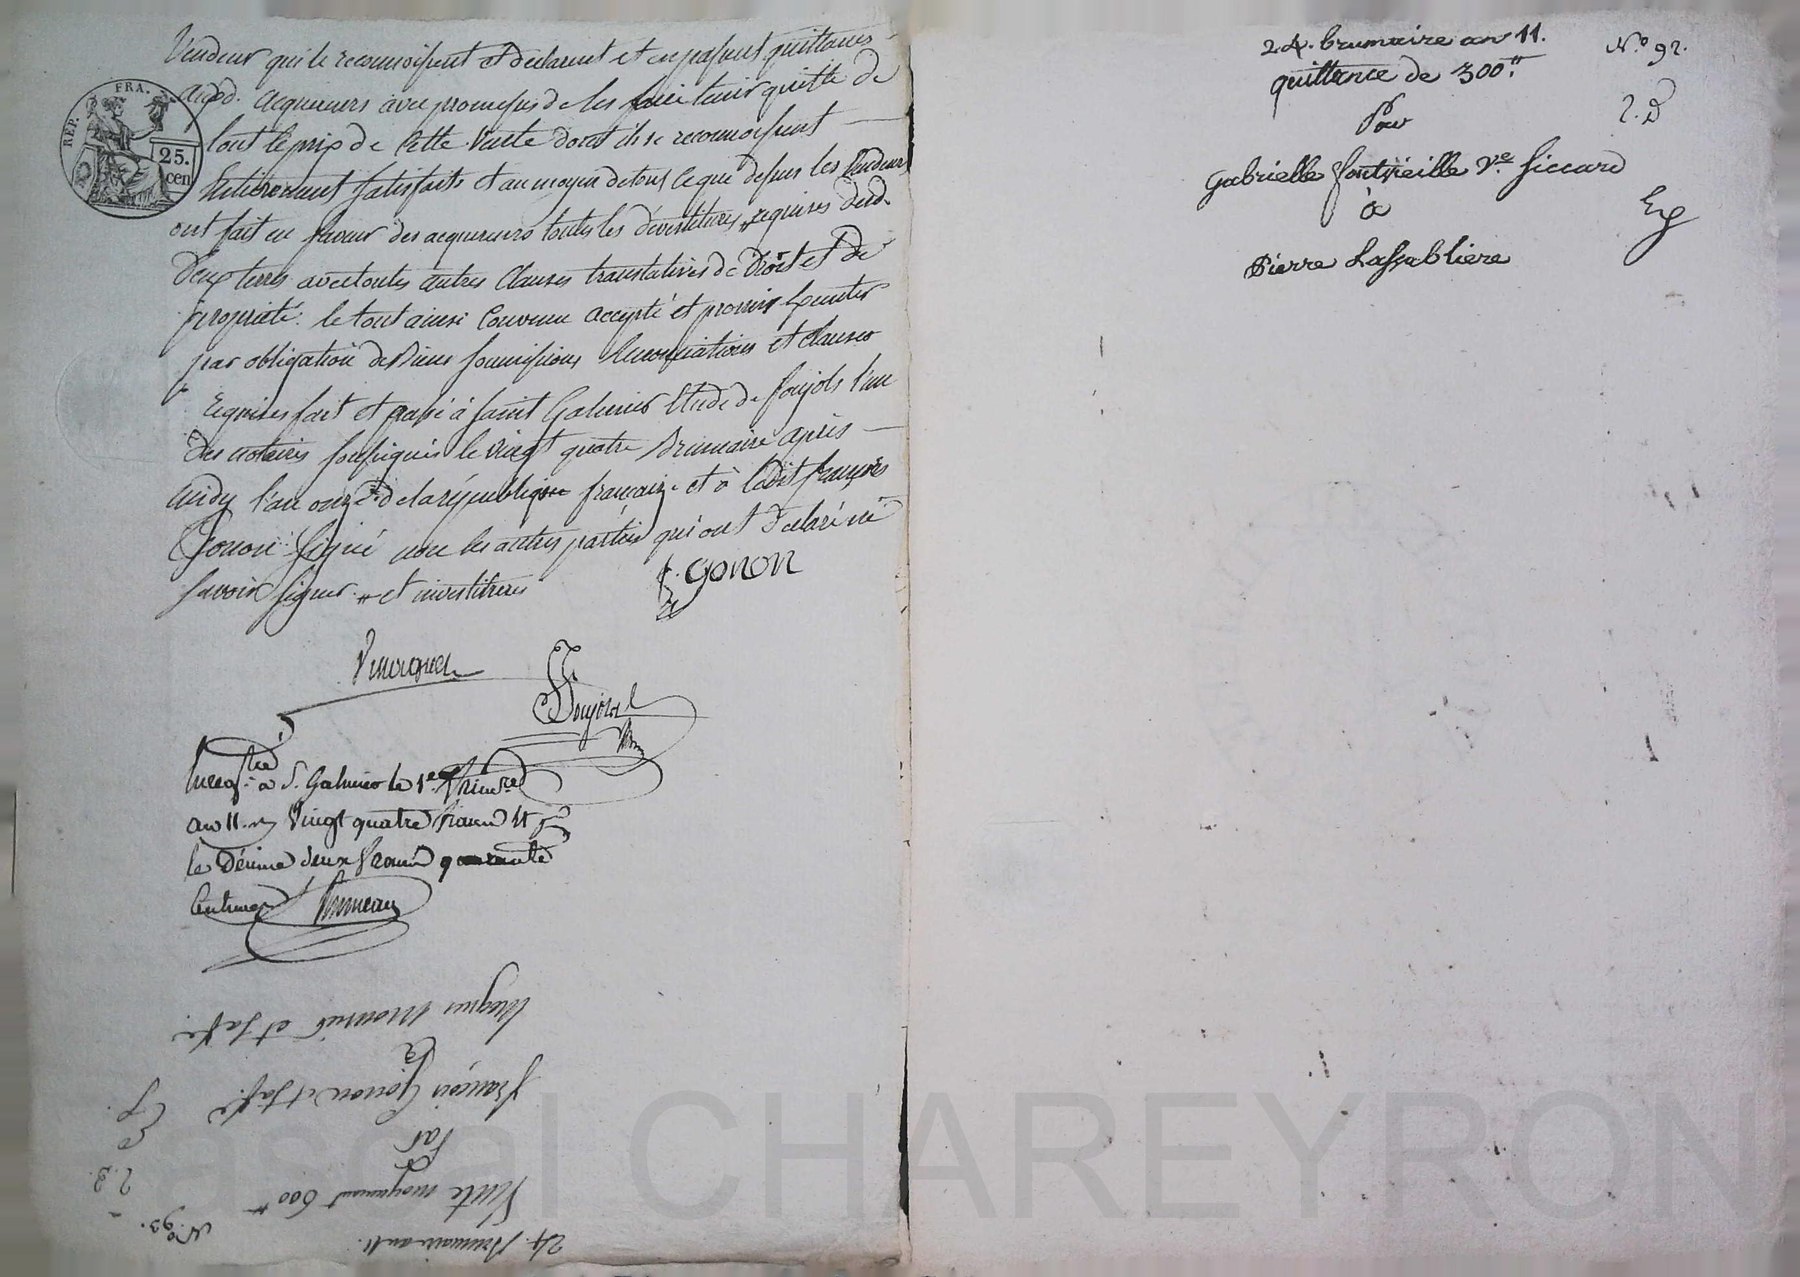 Vendeur qui le reconnoissent et declarent et en passent quittances
auxd. acquereurs avec promesses de les faire tenir quitte de
tout le prix de cette Vente dont ils se reconnoissent
Entierement satisfaits et au moyen de tout ce que dessus les Vendeurs
ont fait en faveur des acquereurs toutes les dévestitures " requises desd.
deux terres avec toutes autres Clauses translatives de Droit et de
propriété. le tout ainsi Convenu accepté et promis Executer
par obligation de Biens soumissions Renonciations et Clauses
Requises fait et passé à Saint Galmier Etude de Poujols l'un
des notaires soussignés le vingt quatre Brumaire après
midy l'an onze de la république française et à ledit françois
Gonon signé non les autres parties qui ont declaré ne
savoir signer " et investitures
f. gonon
REP. FRA.
25.
cen
Enregistré à S. Galmier le 1er frimaire
an 11. Vingt quatre francs
le Décime deux francs quarante
Centimes
24. brumaire an 11.
Vente moyennant 600
Par
françois Gonon et sa fe.
à
Mounié et sa fe.
N.o 93.
2. D.
Ex
24. brumaire an 11.
quittance de 300.tt
Pour
Gabrielle fontvieille Ve. Siccard
à
Pierre Lassabliere
N.o 92.
2. D
Ex
Pascal CHAREYRON